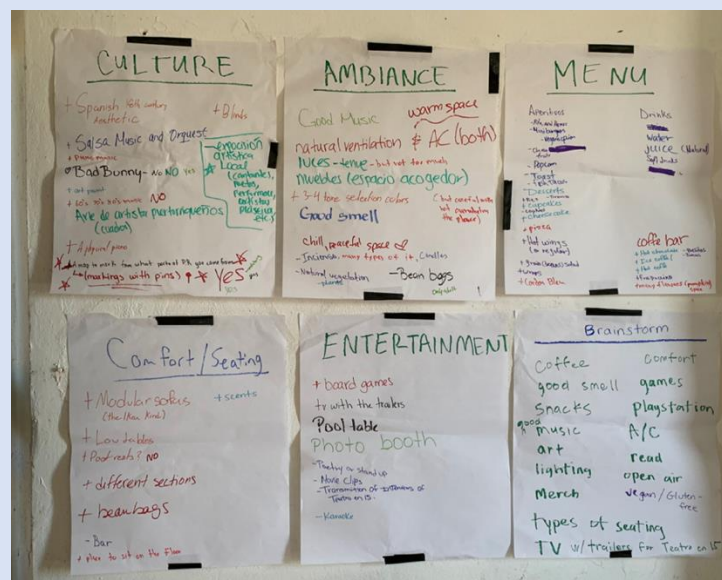 CULTURE
+ Spanish 16th century
Aesthetic
+ Blinds
+ Salsa Music and Orquest
Bad Bunny - No NO yes
+ 60's 70's 80's music NO
Arte de artista puertorriqueños
(cuadros)
- exposición
artística
Local
(cantantes,
poetas,
performers,
artistas
plásticos,
etc.)
+ A physical piano
map to mark from what part of PR you come from
(markings with pins)
Yes
AMBIANCE
Good Music
warm space
natural ventilation & AC (both)
luces - tenue - but not too much
muebles (espacio acogedor)
+ 3-4 tone selection colors
(but careful with not overwhelm
the place)
Good smell
chill, peaceful space
- Incienses, many types of it, Candles
- Natural vegetation
- plants
- Bean bags
MENU
Aperitivos
- Mini burgers
Popcorn
- Toast
Desserts
+ cupcakes
- cheesecake
+ pizza
+ Hot wings
(or regular)
+ wraps
+ Cordon Bleu
Drinks
Water
Juice (Natural)
Soft drinks
coffee bar
+ Hot chocolate
+ Ice coffee
+ Hot coffee
+ Frappuccino
+ many flavours (pumpkin
spice
Comfort/Seating
+ Modular sofas
(the Ikea kind)
+ scents
+ Low tables
+ Foot rests? NO
+ different sections
+ beanbags
- Bar
+ place to sit on the floor
ENTERTAINMENT
+ board games
tv with the trailers
Pool table
Photo booth
- Poetry or stand up
- Movie Clips
- Transmission of interviews of
Teatro en 15
- Karaoke
Brainstorm
coffee
comfort
good smell
games
snacks
playstation
good
music
A/C
art
read
lighting
open air
Merch
vegan/Gluten-
free
types of seating
TV w/ trailers For Teatro en 15